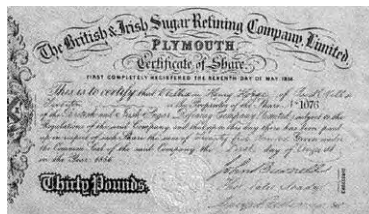 The British & Irish Sugar Refining Company, Limited.
PLYMOUTH.
Certificate of Share.
FIRST COMPLETELY REGISTERED THE SEVENTH DAY OF MAY 1856
This is to certify that William Henry of
is the Proprietor of the Share No 1076
of the British and Irish Sugar Refining Company Limited, subject to the
Regulations of the said Company, and that up to this day there has been paid
up in respect of such Share the sum of Twenty five Pounds. Given under
the Common Seal of the said Company the first day of August
in the Year 1856
Thirty Pounds.